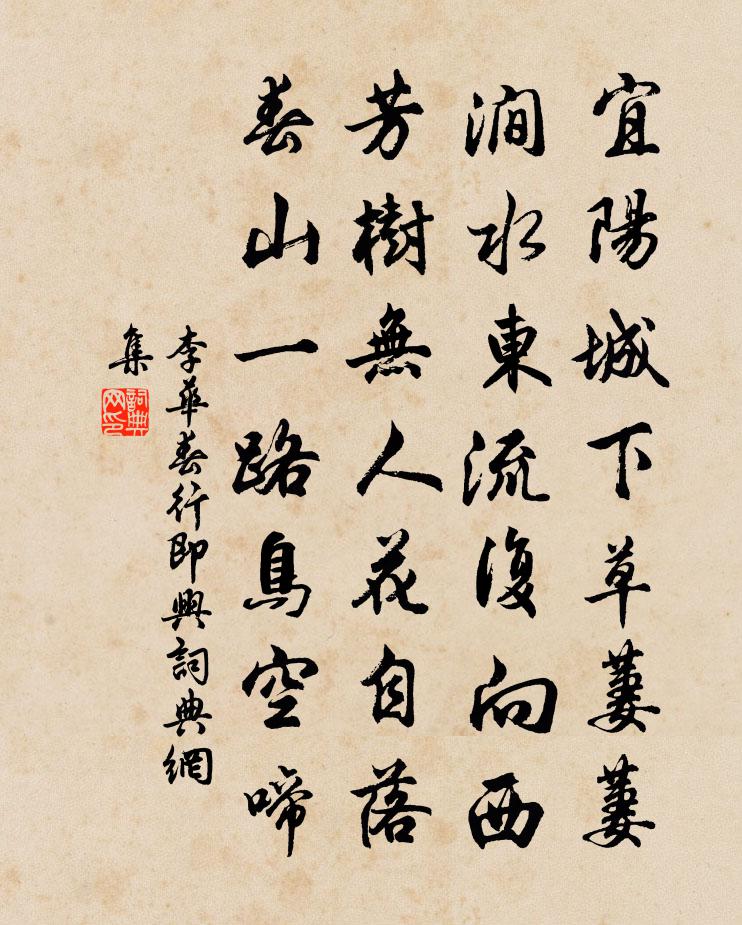 宜陽城下草萋萋
澗水東流復向西
芳樹無人花自落
春山一路鳥空啼
李華春行即興詞典網
集
詞典
网印